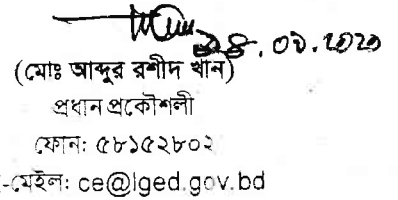 ২৪.০৩.২০২০
(মোঃ আব্দুর রশীদ খান)
প্রধান প্রকৌশলী
ফোন: ৫৮১৫২৮০২
-মেইল: ce@lged.gov.bd